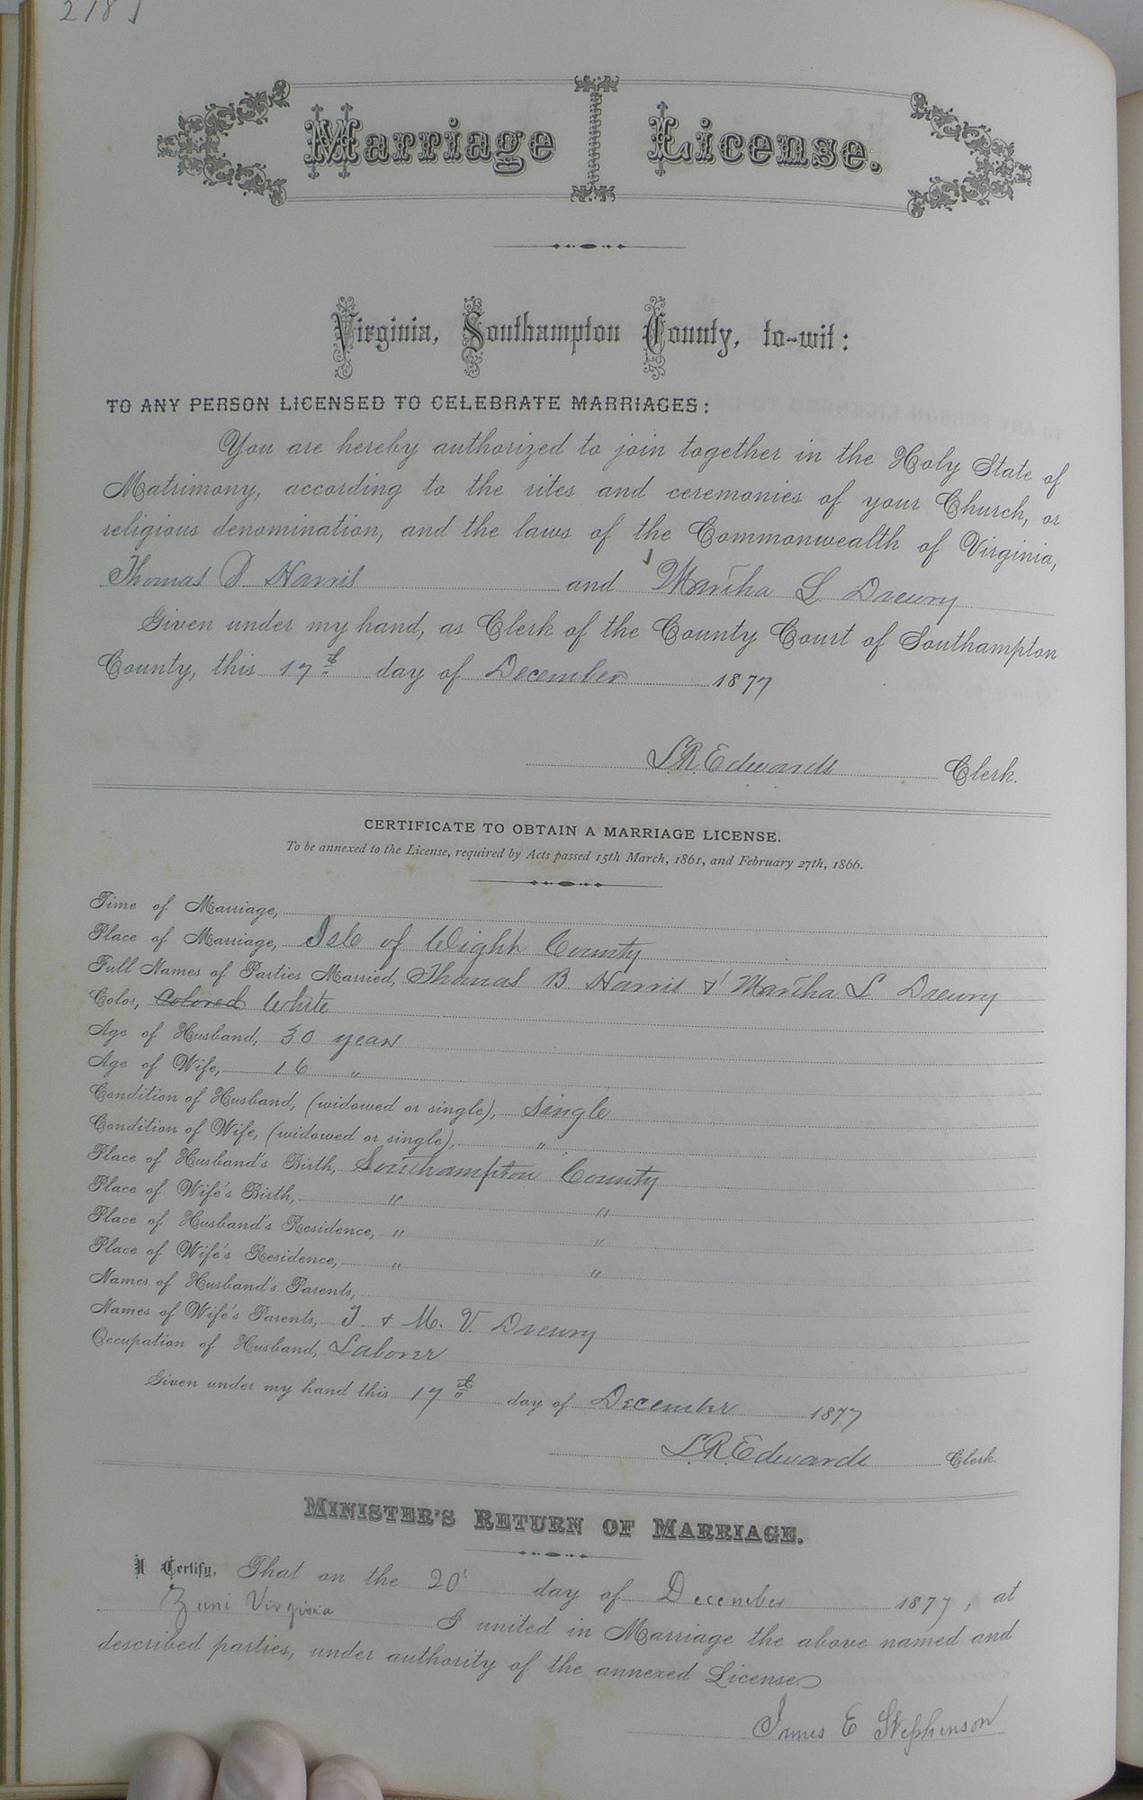 Marriage License.
Virginia, Southampton County, to-wit:
TO ANY PERSON LICENSED TO CELEBRATE MARRIAGES:
You are hereby authorized to join together in the Holy State of
Matrimony, according to the rites and ceremonies of your Church, or
religious denomination, and the laws of the Commonwealth of Virginia,
Thomas B Harris and Martha L Drewry
Given under my hand, as Clerk of the County Court of Southampton
County, this 17th day of December 1877
L.R. Edwards Clerk.
CERTIFICATE TO OBTAIN A MARRIAGE LICENSE.
To be annexed to the License, required by Acts passed 15th March, 1861, and February 27th, 1866.
Time of Marriage,
Place of Marriage, Isle of Wight County
Full Names of Parties Married, Thomas B Harris & Martha L Drewry
Color, Colored White
Age of Husband, 30 years
Age of Wife, 16 "
Condition of Husband, (widowed or single), Single
Condition of Wife, (widowed or single), "
Place of Husband's Birth, Southampton County
Place of Wife's Birth, " "
Place of Husband's Residence, " "
Place of Wife's Residence, " "
Names of Husband's Parents,
Names of Wife's Parents, J & M. V. Drewry
Occupation of Husband, Laborer
Given under my hand this 17th day of December 1877
L.R. Edwards Clerk.
MINISTER'S RETURN OF MARRIAGE.
I Certify, That on the 20 day of December 1877, at
Zuni Virginia I united in Marriage the above named and
described parties, under authority of the annexed License
James E Stephenson